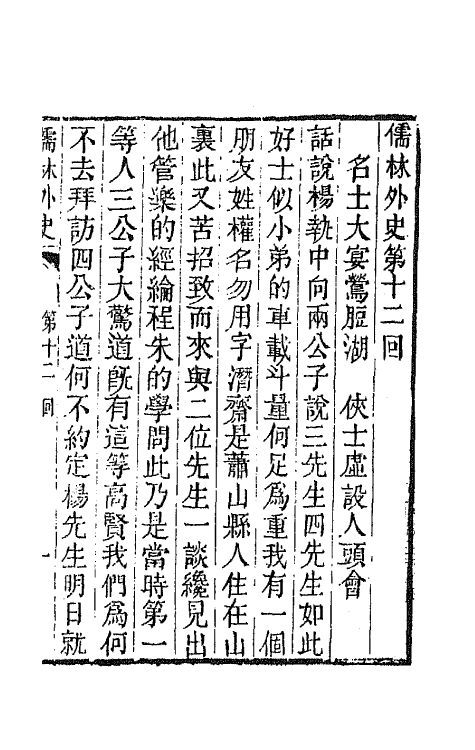 儒林外史第十二回
名士大宴鶯脰湖　俠士虛設人頭會
話說楊執中向兩公子說三先生四先生如此
好士似小弟的車載斗量何足為重我有一個
朋友姓權名勿用字潛齋是蕭山縣人住在山
裏此人若招致而來與二位先生一談纔見出
他管樂的經綸程朱的學問此乃是當時第一
等人三公子大驚道旣有這等高賢我們為何
不去拜訪四公子道何不約定楊先生明日就
儒林外史
第十二回
一